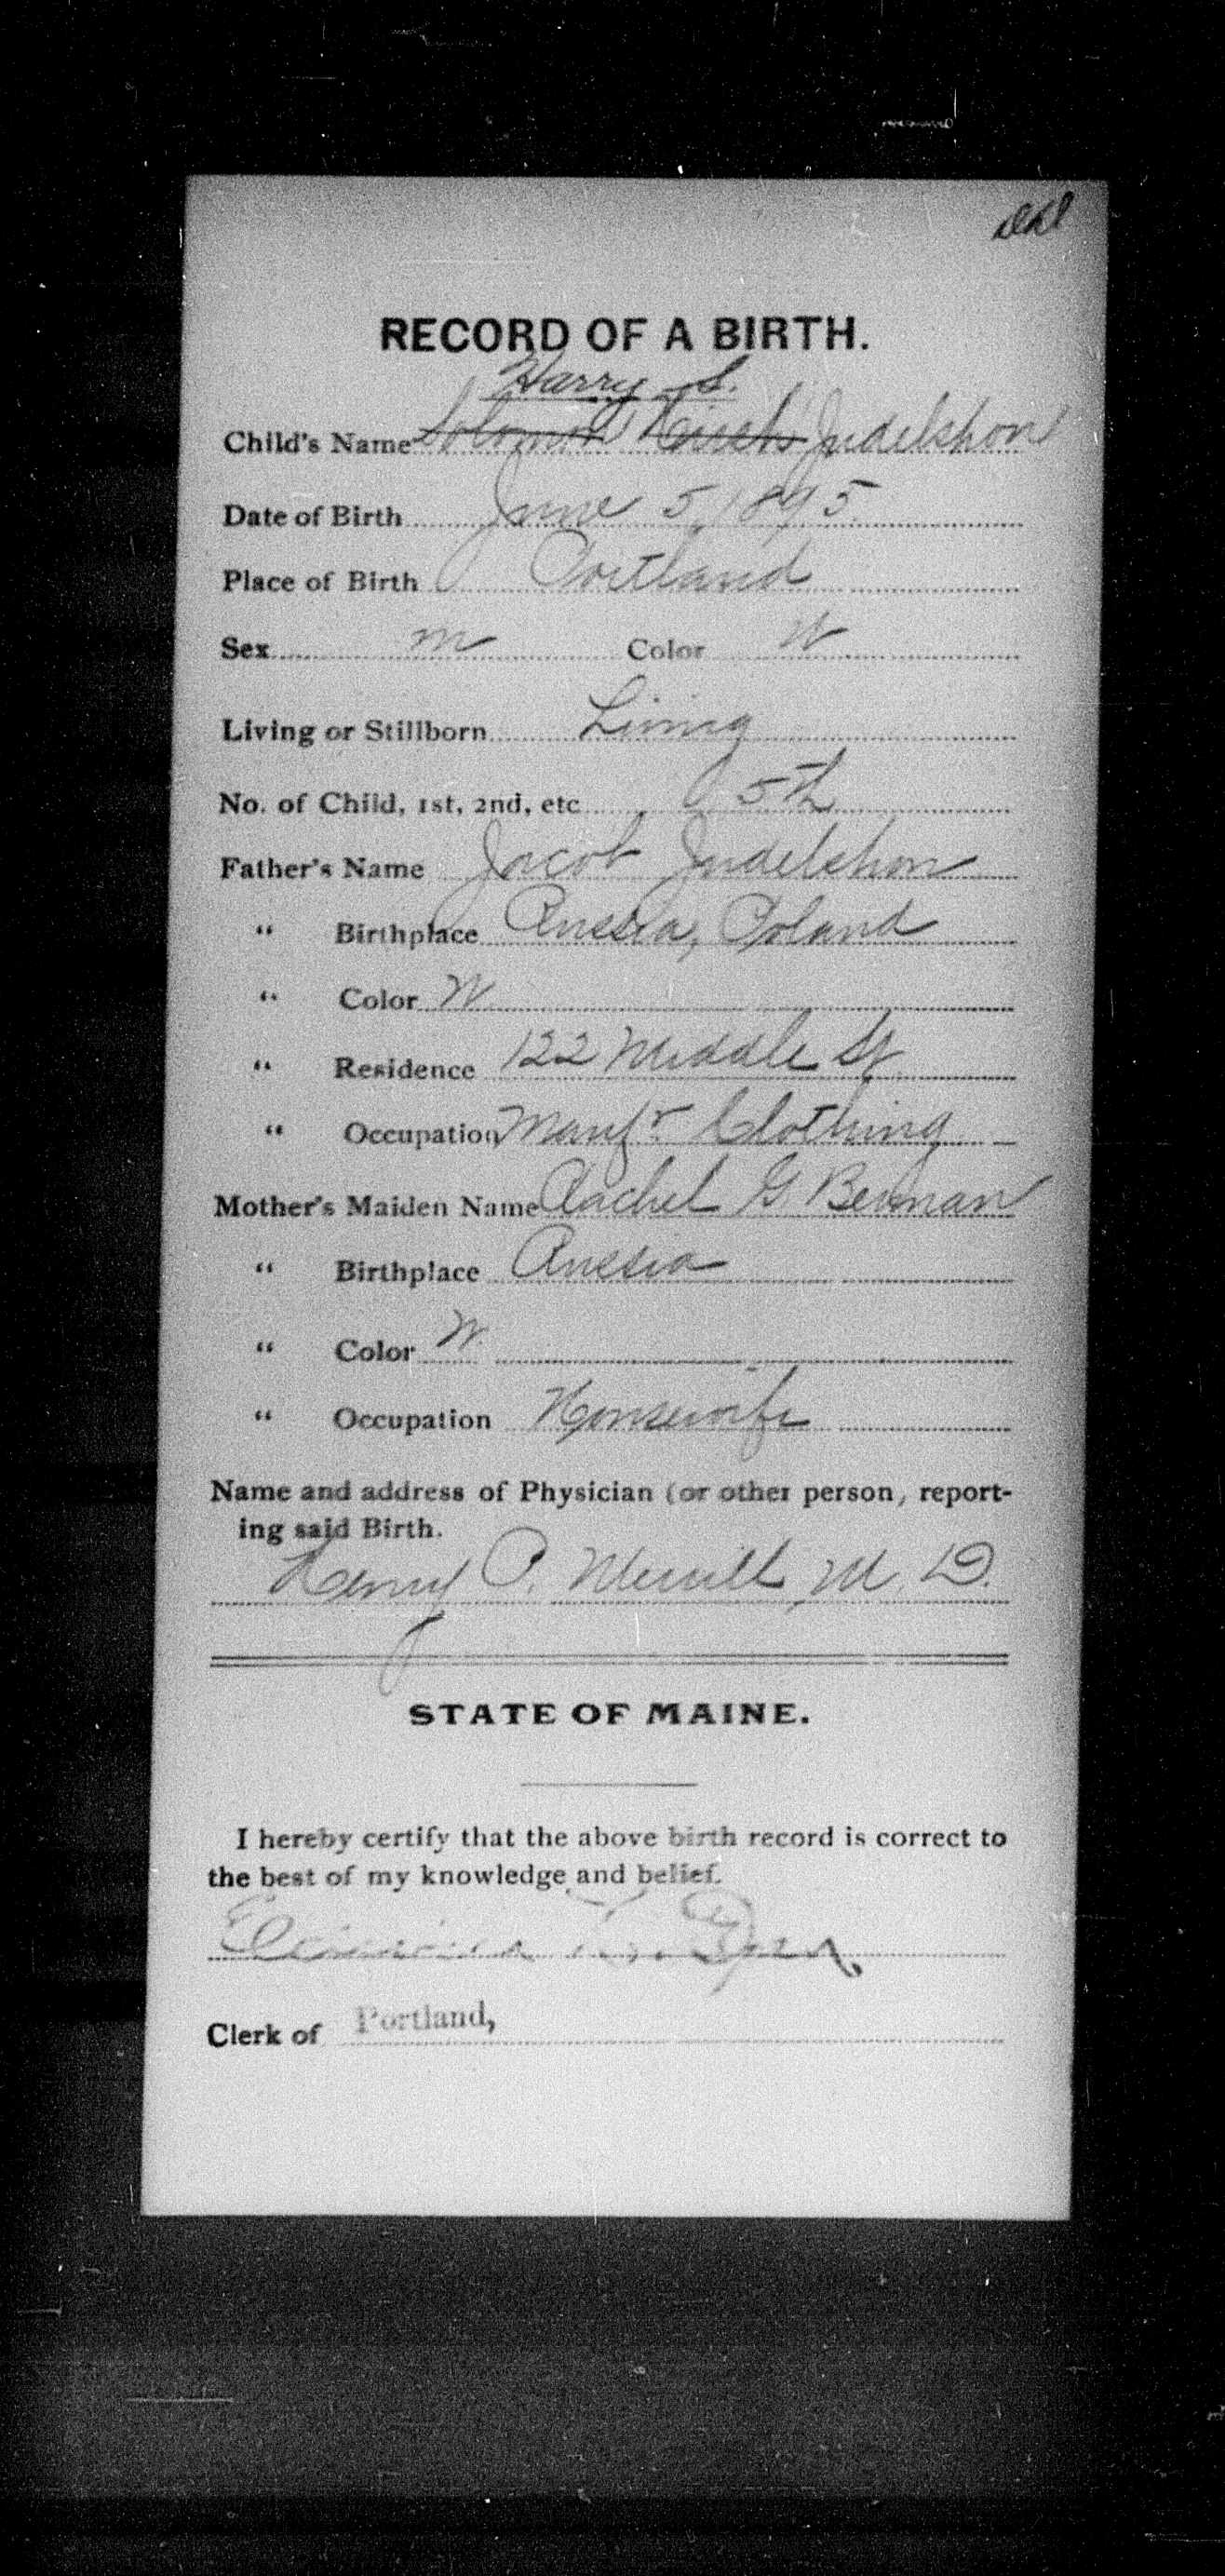 RECORD OF A BIRTH.
Harry S.
Child's Name Solomon Hirsch Judelshon
Date of Birth June 5, 1895
Place of Birth Portland
Sex m Color W
Living or Stillborn Living
No. of Child, 1st, 2nd, etc 5th
Father's Name Jacob Judelshon
" Birthplace Russia, Poland
" Color W
" Residence 122 Middle St
" Occupation Manfr. Clothing
Mother's Maiden Name Rachel G Berman
" Birthplace Russia
" Color W.
" Occupation Housewife
Name and address of Physician (or other person, report-
ing said Birth.
Henry P. Merrill, M. D.
STATE OF MAINE.
I hereby certify that the above birth record is correct to
the best of my knowledge and belief.
Clerk of Portland,